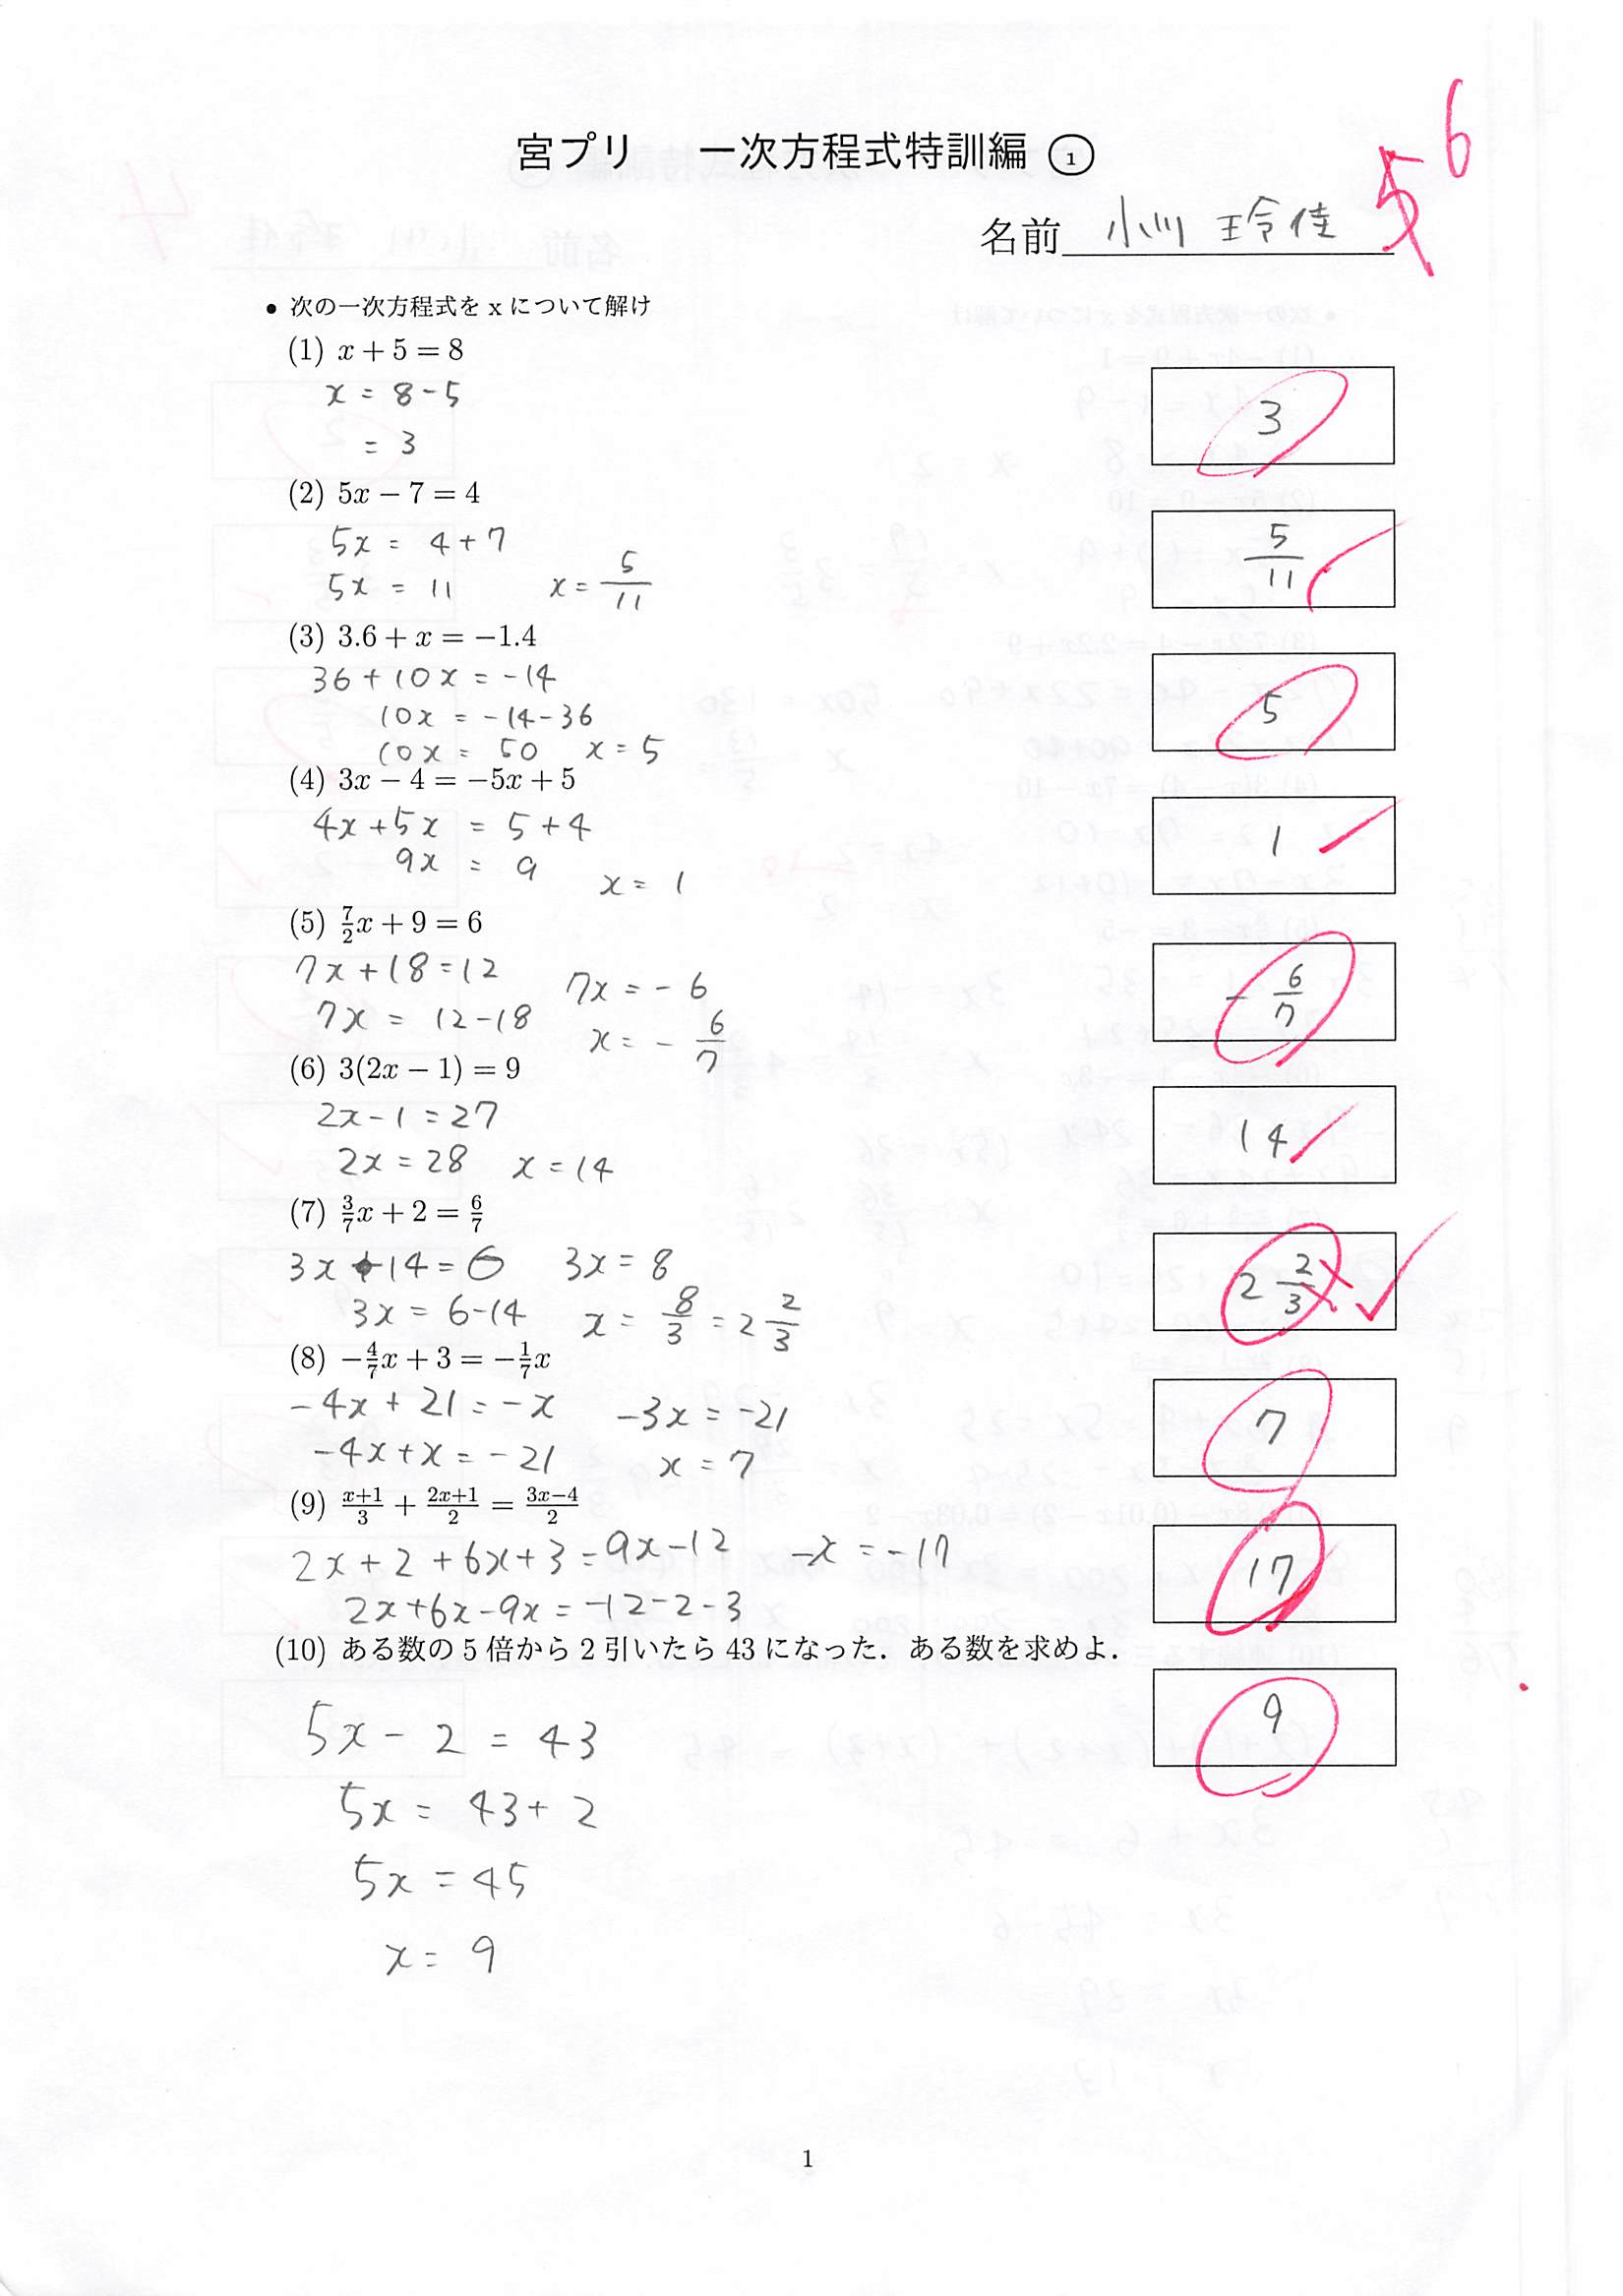 宮プリ 一次方程式特訓編 ①
5 6
名前 小川 玲佳
• 次の一次方程式を x について解け
(1) x + 5 = 8
x = 8 - 5
= 3
3
(2) 5x − 7 = 4
5x = 4 + 7
5x = 11 x = 5/11
5/11
(3) 3.6 + x = −1.4
36 + 10x = -14
10x = -14-36
10x = 50 x = 5
5
(4) 3x − 4 = −5x + 5
4x + 5x = 5 + 4
9x = 9 x = 1
1
(5) 7/2 x + 9 = 6
7x + 18 = 12 7x = - 6
7x = 12-18 x = - 6/7
- 6/7
(6) 3(2x − 1) = 9
2x - 1 = 27
2x = 28 x = 14
14
(7) 3/7 x + 2 = 6/7
3x + 14 = 6 3x = 8
3x = 6-14 x = 8/3 = 2 2/3
2 2/3
(8) −4/7 x + 3 = −1/7 x
-4x + 21 = -x -3x = -21
-4x + x = -21 x = 7
7
(9) x+1/3 + 2x+1/2 = 3x−4/2
2x + 2 + 6x + 3 = 9x - 12 -x = -17
2x + 6x - 9x = -12 - 2 - 3
17
(10) ある数の 5 倍から 2 引いたら 43 になった．ある数を求めよ．
5x - 2 = 43
5x = 43 + 2
5x = 45
x = 9
9
1